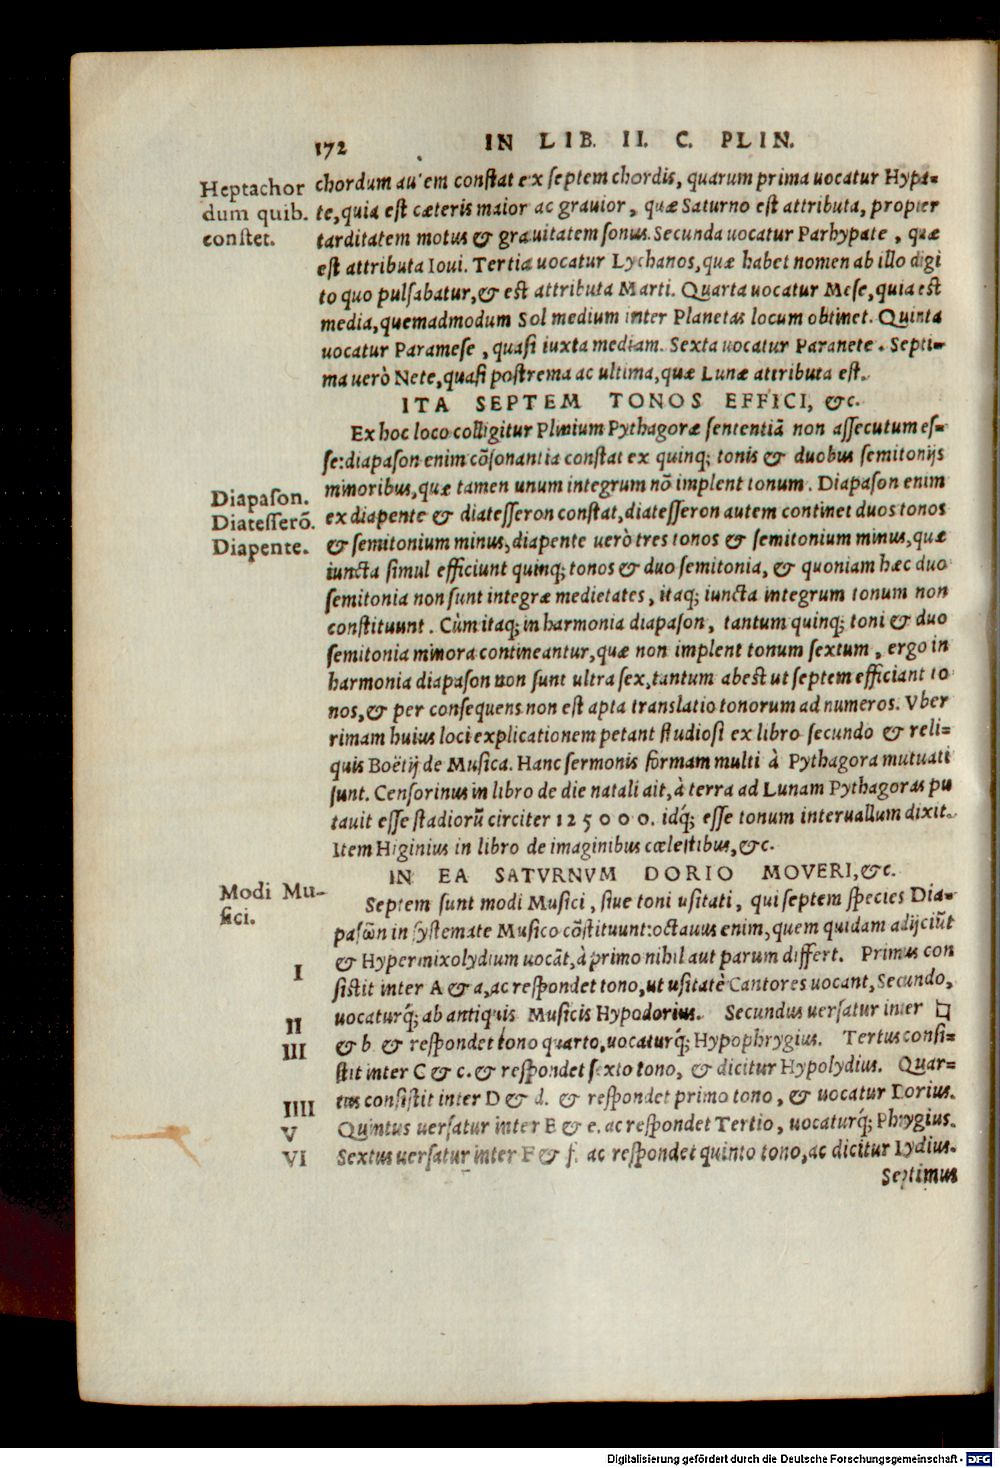 172 IN LIB. II. C. PLIN.
Heptachor
dum quib.
constet.
chordum autem constat ex septem chordis, quarum prima uocatur Hypa=
te, quia est cæteris maior ac grauior, quæ Saturno est attributa, propter
tarditatem motus & grauitatem sonus. Secunda uocatur Parhypate, quæ
est attributa Ioui. Tertia uocatur Lychanos, quæ habet nomen ab illo digi
to quo pulsabatur, & est attributa Marti. Quarta uocatur Mese, quia est
media, quemadmodum Sol medium inter Planetas locum obtinet. Quinta
uocatur Paramese, quasi iuxta mediam. Sexta uocatur Paranete. Septi=
ma uerò Nete, quasi postrema ac ultima, quæ Lunæ attributa est.
ITA SEPTEM TONOS EFFICI, &c.
Ex hoc loco colligitur Plinium Pythagoræ sententiã non assecutum es=
se: diapason enim cõsonantia constat ex quinq; tonis & duobus semitonijs
minoribus, quæ tamen unum integrum nõ implent tonum. Diapason enim
ex diapente & diatesseron constat, diatesseron autem continet duos tonos
& semitonium minus, diapente uerò tres tonos & semitonium minus, quæ
iuncta simul efficiunt quinq; tonos & duo semitonia, & quoniam hæc duo
semitonia non sunt integræ medietates, itaq; iuncta integrum tonum non
constituunt. Cùm itaq; in harmonia diapason, tantum quinq; toni & duo
semitonia minora contineantur, quæ non implent tonum sextum, ergo in
harmonia diapason non sunt ultra sex, tantum abest ut septem efficiant to
nos, & per consequens non est apta translatio tonorum ad numeros. Vber
rimam huius loci explicationem petant studiosi ex libro secundo & reli=
quis Boëtij de Musica. Hanc sermonis formam multi à Pythagora mutuati
sunt. Censorinus in libro de die natali ait, à terra ad Lunam Pythagoras pu
tauit esse stadiorũ circiter 125000. idq́; esse tonum interuallum dixit.
Item Higinius in libro de imaginibus cœlestibus, &c.
Diapason.
Diatesserõ.
Diapente.
IN EA SATVRNVM DORIO MOVERI, &c.
Modi Mu-
sici.
Septem sunt modi Musici, siue toni usitati, qui septem species Dia=
pasω̃n in systemate Musico cõstituunt: octauus enim, quem quidam adijciũt
& Hypermixolydium uocãt, à primo nihil aut parum differt. Primus con
sistit inter A & a, ac respondet tono, ut usitatè Cantores uocant, Secundo,
uocaturq́; ab antiquis Musicis Hypodorius. Secundus uersatur inter ♮
& b & respondet tono quarto, uocaturq́; Hypophrygius. Tertus consi=
stit inter C & c. & respondet sexto tono, & dicitur Hypolydius. Quar=
tus consistit inter D & d. & respondet primo tono, & uocatur Dorius.
Quintus uersatur inter E & e. ac respondet Tertio, uocaturq́; Phrygius.
Sextus uersatur inter F & f. ac respondet quinto tono, ac dicitur Lydius.
I
II
III
IIII
V
VI
Septimus
Digitalisierung gefördert durch die Deutsche Forschungsgemeinschaft - DFG